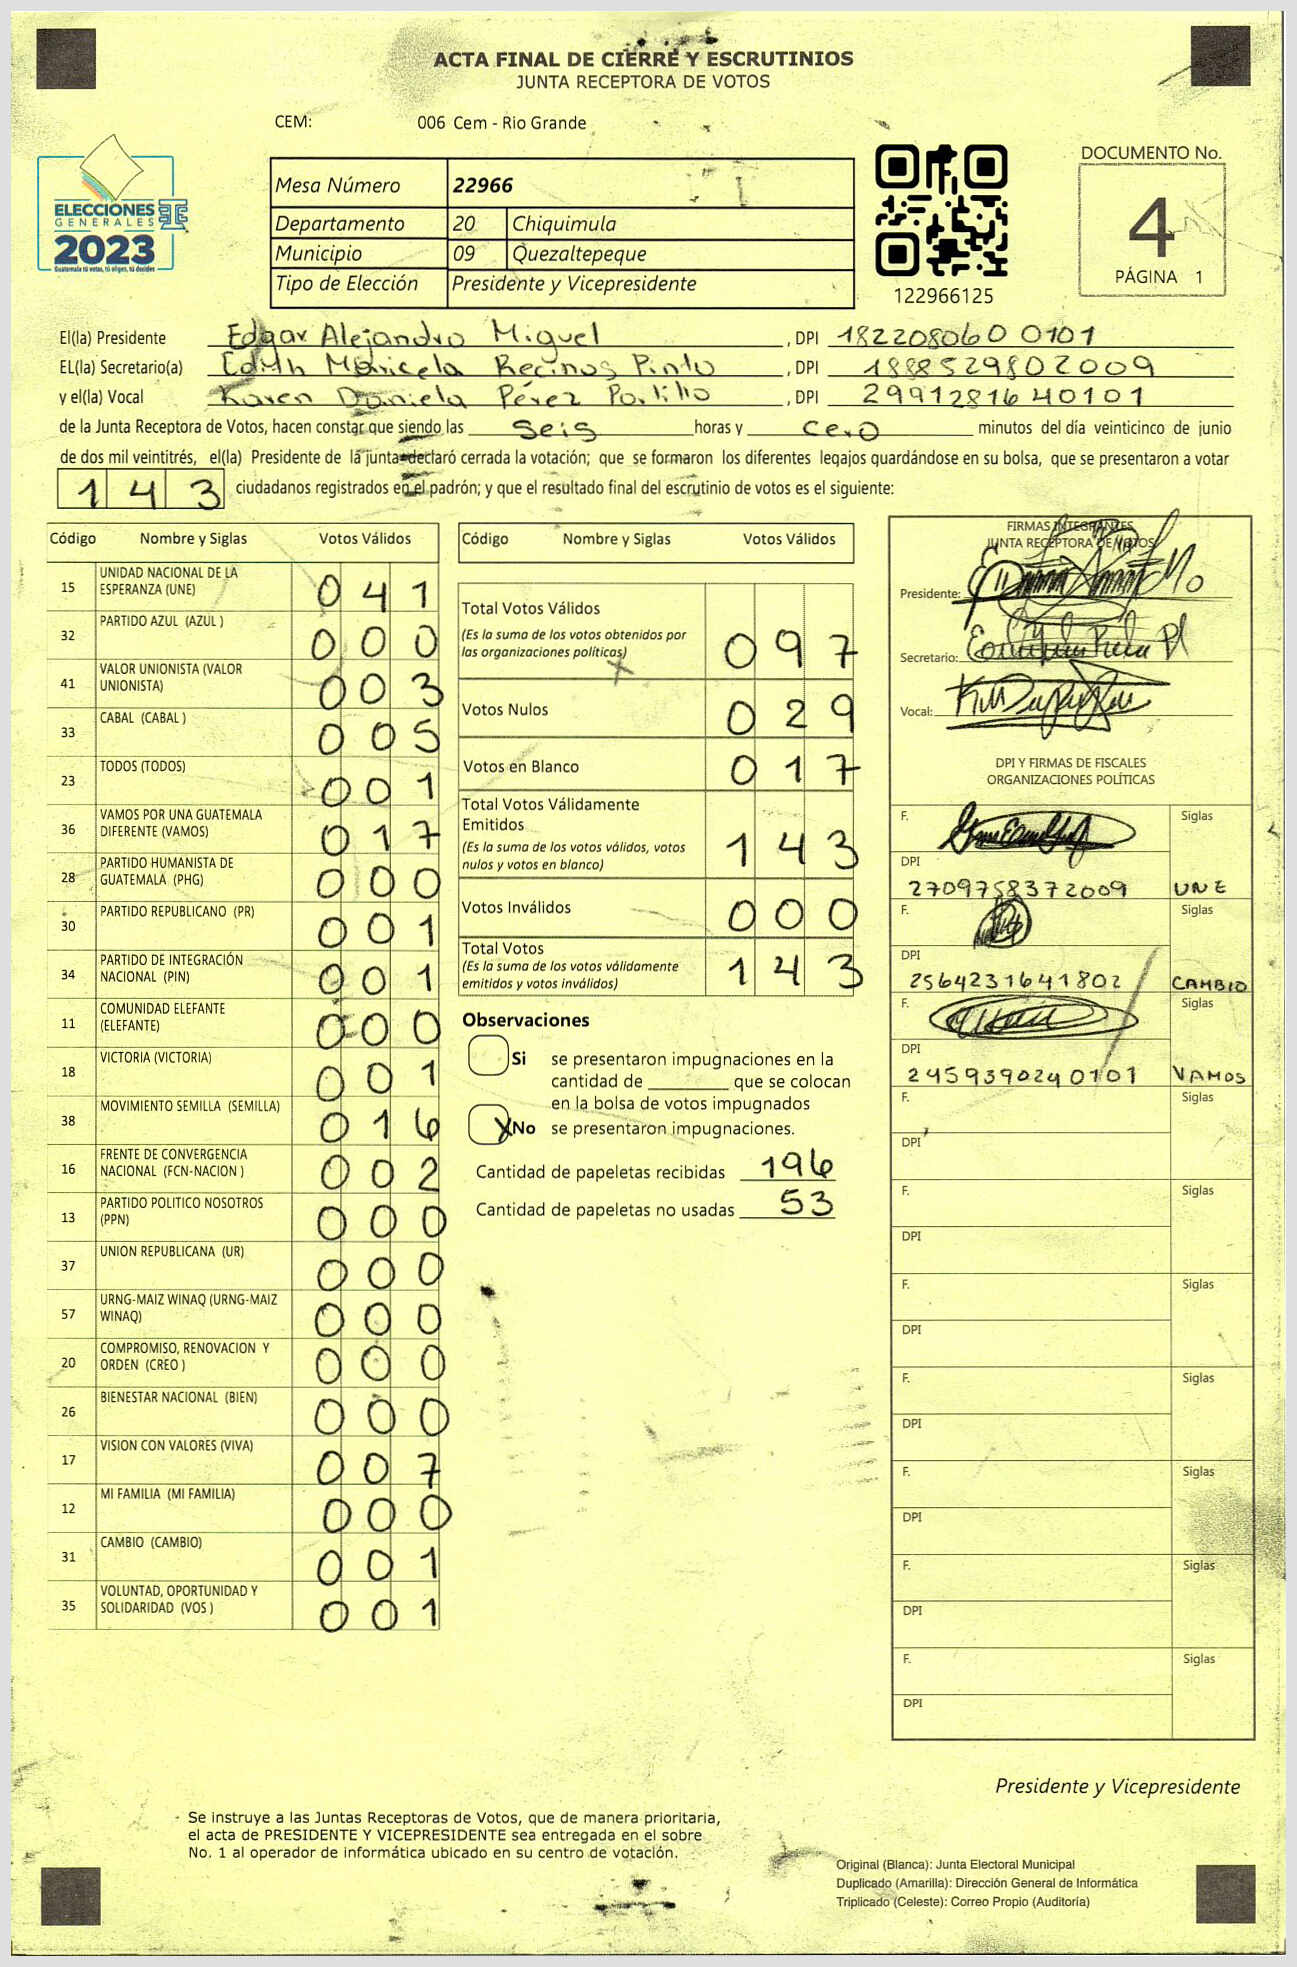 ACTA FINAL DE CIERRE Y ESCRUTINIOS
JUNTA RECEPTORA DE VOTOS
CEM: 006 Cem - Rio Grande
ELECCIONES
GENERALES
2023
Guatemala tú votas, tú eliges, tú decides
Mesa Número 22966
Departamento 20 Chiquimula
Municipio 09 Quezaltepeque
Tipo de Elección Presidente y Vicepresidente
122966125
DOCUMENTO No.
4
PÁGINA 1
El(la) Presidente Edgar Alejandro Miguel, DPI 182208060 0101
EL(la) Secretario(a) Edith Maricela Recinos Pinto, DPI 1888529802009
y el(la) Vocal Karen Daniela Pérez Portillo, DPI 2991281640101
de la Junta Receptora de Votos, hacen constar que siendo las seis horas y cero minutos del día veinticinco de junio
de dos mil veintitrés, el(la) Presidente de la junta declaró cerrada la votación; que se formaron los diferentes legajos guardándose en su bolsa, que se presentaron a votar
143 ciudadanos registrados en el padrón; y que el resultado final del escrutinio de votos es el siguiente:
Código Nombre y Siglas Votos Válidos
15 UNIDAD NACIONAL DE LA ESPERANZA (UNE) 041
32 PARTIDO AZUL (AZUL ) 000
41 VALOR UNIONISTA (VALOR UNIONISTA) 003
33 CABAL (CABAL ) 005
23 TODOS (TODOS) 001
36 VAMOS POR UNA GUATEMALA DIFERENTE (VAMOS) 017
28 PARTIDO HUMANISTA DE GUATEMALA (PHG) 000
30 PARTIDO REPUBLICANO (PR) 001
34 PARTIDO DE INTEGRACIÓN NACIONAL (PIN) 001
11 COMUNIDAD ELEFANTE (ELEFANTE) 000
18 VICTORIA (VICTORIA) 001
38 MOVIMIENTO SEMILLA (SEMILLA) 016
16 FRENTE DE CONVERGENCIA NACIONAL (FCN-NACION ) 002
13 PARTIDO POLITICO NOSOTROS (PPN) 000
37 UNION REPUBLICANA (UR) 000
57 URNG-MAIZ WINAQ (URNG-MAIZ WINAQ) 000
20 COMPROMISO, RENOVACION Y ORDEN (CREO ) 000
26 BIENESTAR NACIONAL (BIEN) 000
17 VISION CON VALORES (VIVA) 007
12 MI FAMILIA (MI FAMILIA) 000
31 CAMBIO (CAMBIO) 001
35 VOLUNTAD, OPORTUNIDAD Y SOLIDARIDAD (VOS ) 001
Código Nombre y Siglas Votos Válidos
Total Votos Válidos 097
(Es la suma de los votos obtenidos por
las organizaciones políticas)
Votos Nulos 029
Votos en Blanco 017
Total Votos Válidamente
Emitidos 143
(Es la suma de los votos válidos, votos
nulos y votos en blanco)
Votos Inválidos 000
Total Votos 143
(Es la suma de los votos válidamente
emitidos y votos inválidos)
Observaciones
Si se presentaron impugnaciones en la
cantidad de ________ que se colocan
en la bolsa de votos impugnados
X No se presentaron impugnaciones.
Cantidad de papeletas recibidas 196
Cantidad de papeletas no usadas 53
FIRMAS INTEGRANTES
JUNTA RECEPTORA DE VOTOS
Presidente:
Secretario:
Vocal:
DPI Y FIRMAS DE FISCALES
ORGANIZACIONES POLÍTICAS
F. Siglas
DPI
2709758372009 UNE
F. Siglas
DPI
2564231641802 CAMBIO
F. Siglas
DPI
2459390240101 VAMOS
F. Siglas
DPI
F. Siglas
DPI
F. Siglas
DPI
F. Siglas
DPI
F. Siglas
DPI
F. Siglas
DPI
F. Siglas
DPI
Presidente y Vicepresidente
Se instruye a las Juntas Receptoras de Votos, que de manera prioritaria,
el acta de PRESIDENTE Y VICEPRESIDENTE sea entregada en el sobre
No. 1 al operador de informática ubicado en su centro de votación.
Original (Blanca): Junta Electoral Municipal
Duplicado (Amarilla): Dirección General de Informática
Triplicado (Celeste): Correo Propio (Auditoría)